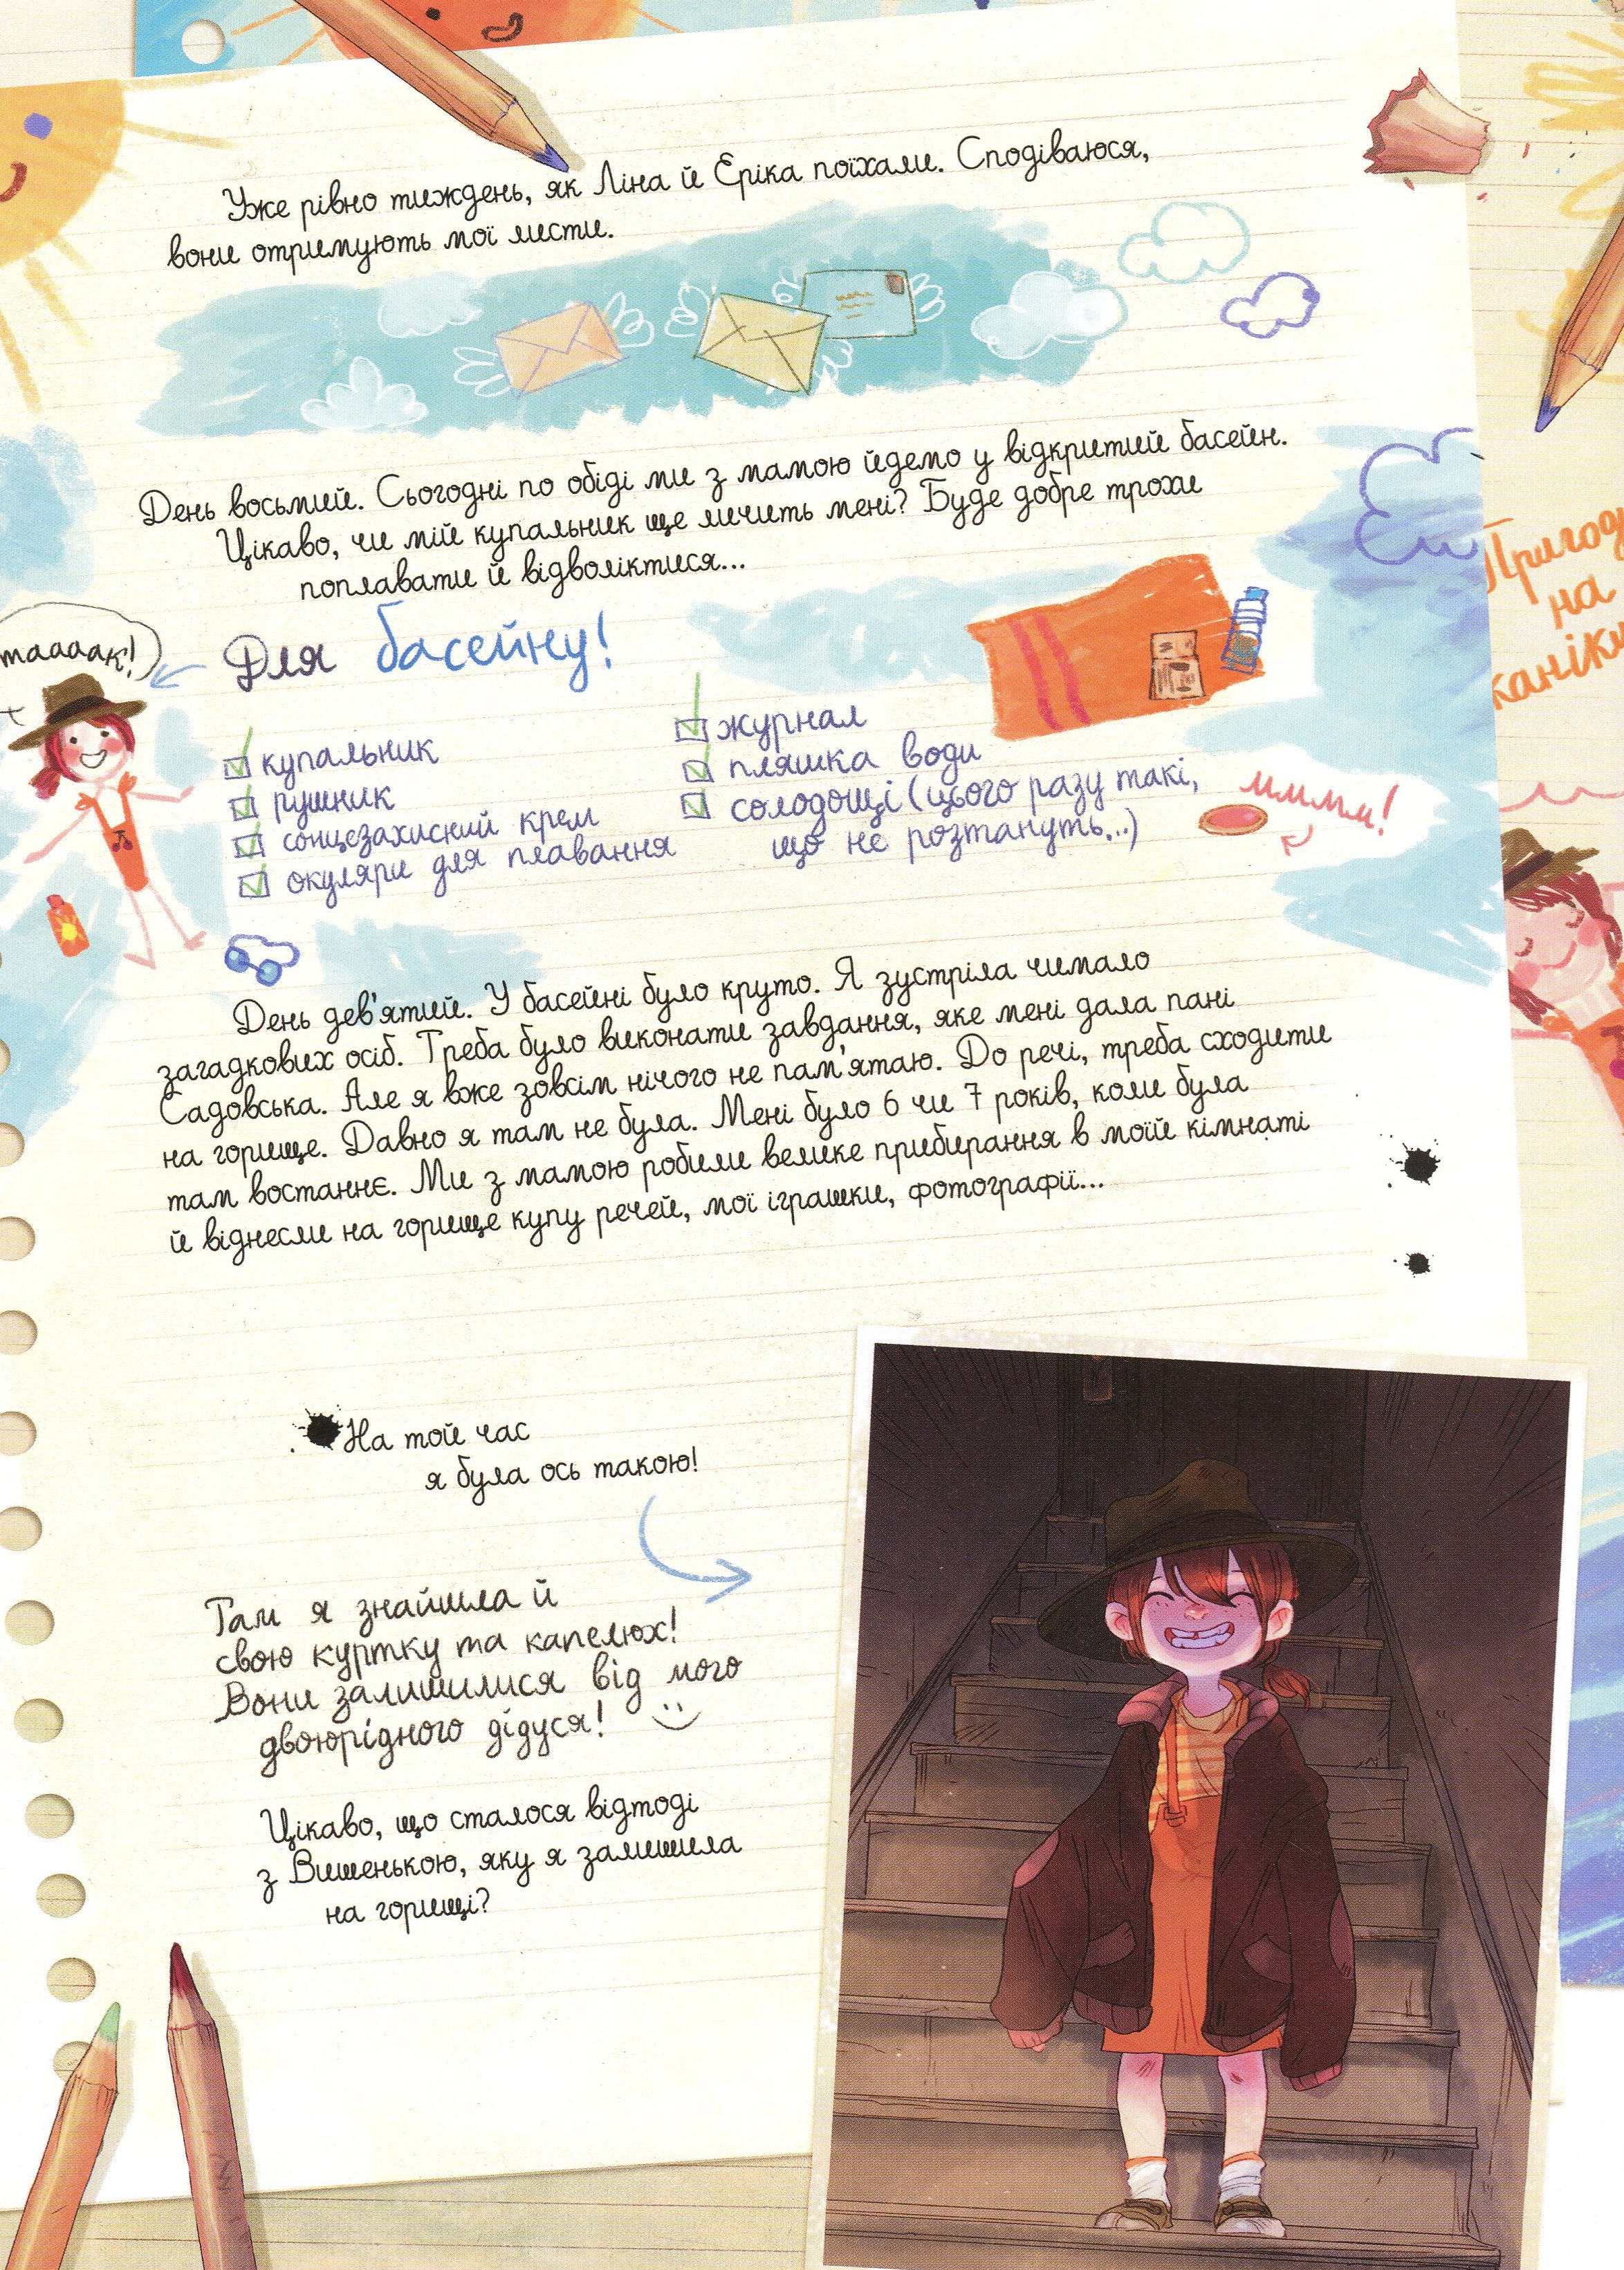 Уже рівно тиждень, як Ліна й Еріка поїхали. Сподіваюся,
вони отримують мої листи.
День восьмий. Сьогодні по обіді ми з мамою йдемо у відкритий басейн.
Цікаво, чи мій купальник ще личить мені? Буде добре трохи
поплавати й відволіктися...
таааак!
Для басейну!
купальник
рушник
сонцезахисний крем
окуляри для плавання
журнал
пляшка води
солодощі (цього разу такі,
що не розтануть...)
мммм!
Пригод
на
каніку
День дев'ятий. У басейні було круто. Я зустріла чимало
загадкових осіб. Треба було виконати завдання, яке мені дала пані
Садовська. Але я вже зовсім нічого не пам'ятаю. До речі, треба сходити
на горище. Давно я там не була. Мені було 6 чи 7 років, коли була
там востаннє. Ми з мамою робили велике прибирання в моїй кімнаті
й віднесли на горище купу речей, мої іграшки, фотографії...
На той час
я була ось такою!
Там я знайшла й
свою куртку та капелюх!
Вони залишилися від мого
двоюрідного дідуся!
Цікаво, що сталося відтоді
з Вишенькою, яку я залишила
на горищі?